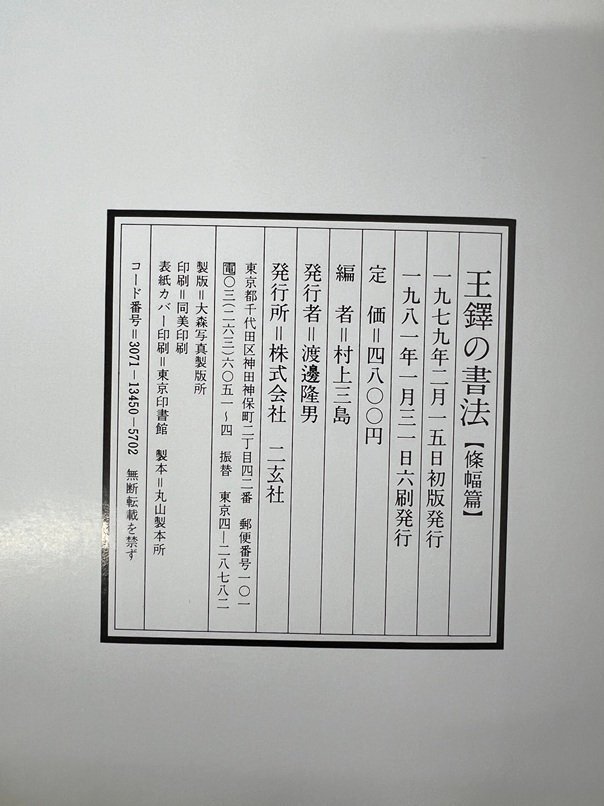 王鐸の書法【條幅篇】
一九七九年二月一五日初版発行
一九八一年一月三一日六刷発行
定　価＝四八〇〇円
編　者＝村上三島
発行者＝渡邊隆男
発行所＝株式会社　二玄社
東京都千代田区神田神保町二丁目四二番　郵便番号一〇一
電〇三(二六三)六〇五一～四　振替　東京四―二八七八二
製版＝大森写真製版所
印刷＝同美印刷
表紙カバー印刷＝東京印書館　製本＝丸山製本所
コード番号＝3071－13450－5702　無断転載を禁ず